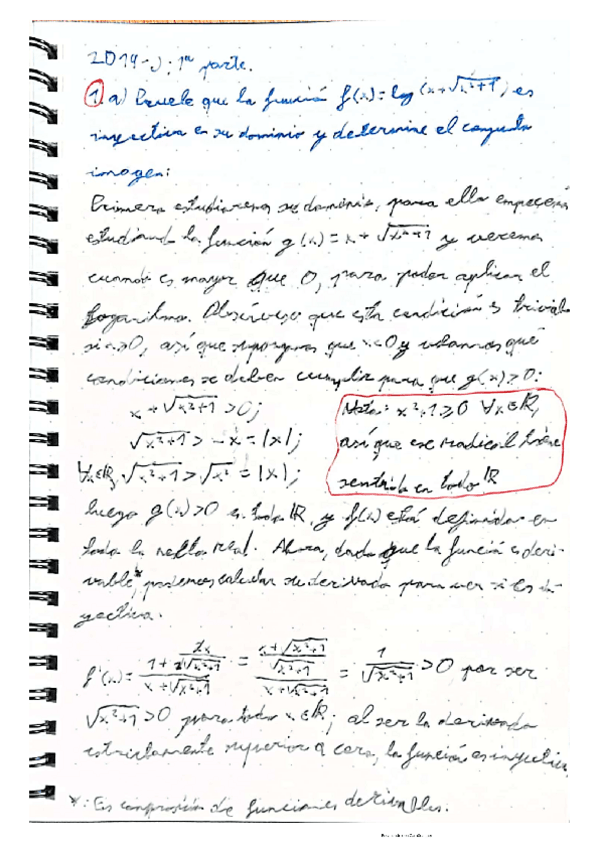 2014-J: 1ª parte.
1. a) Pruebe que la función f(x)=log(x+√x²+1) es
inyectiva en su dominio y determine el conjunto
imagen:
Primero estudiaremos su dominio, para ello empezamos
estudiando la función g(x)=x+√x²+1 y veremos
cuando es mayor que 0, para poder aplicar el
logaritmo. Obsérvese que esta condición es trivial
si x≥0, así que supongamos que x<0 y veamos qué
condiciones se deben cumplir para que g(x)>0:
x+√x²+1 >0;
√x²+1 > -x = |x|;
∀x∈ℝ, √x²+1 > √x² = |x|;
Nota: x²+1≥0 ∀x∈ℝ,
así que ese radical tiene
sentido en todo ℝ
luego g(x)>0 en todo ℝ, y f(x) está definida en
toda la recta real. Ahora, dado que la función es deri-
vable*, podemos calcular su derivada para ver si es in-
yectiva.
f'(x)= (1+ 2x/2√x²+1)/(x+√x²+1) = ((x+√x²+1)/√x²+1)/(x+√x²+1) = 1/√x²+1 >0 por ser
√x²+1 >0 para todo x∈ℝ; al ser la derivada
estrictamente superior a cero, la función es inyectiva.
*: Es composición de funciones derivables.